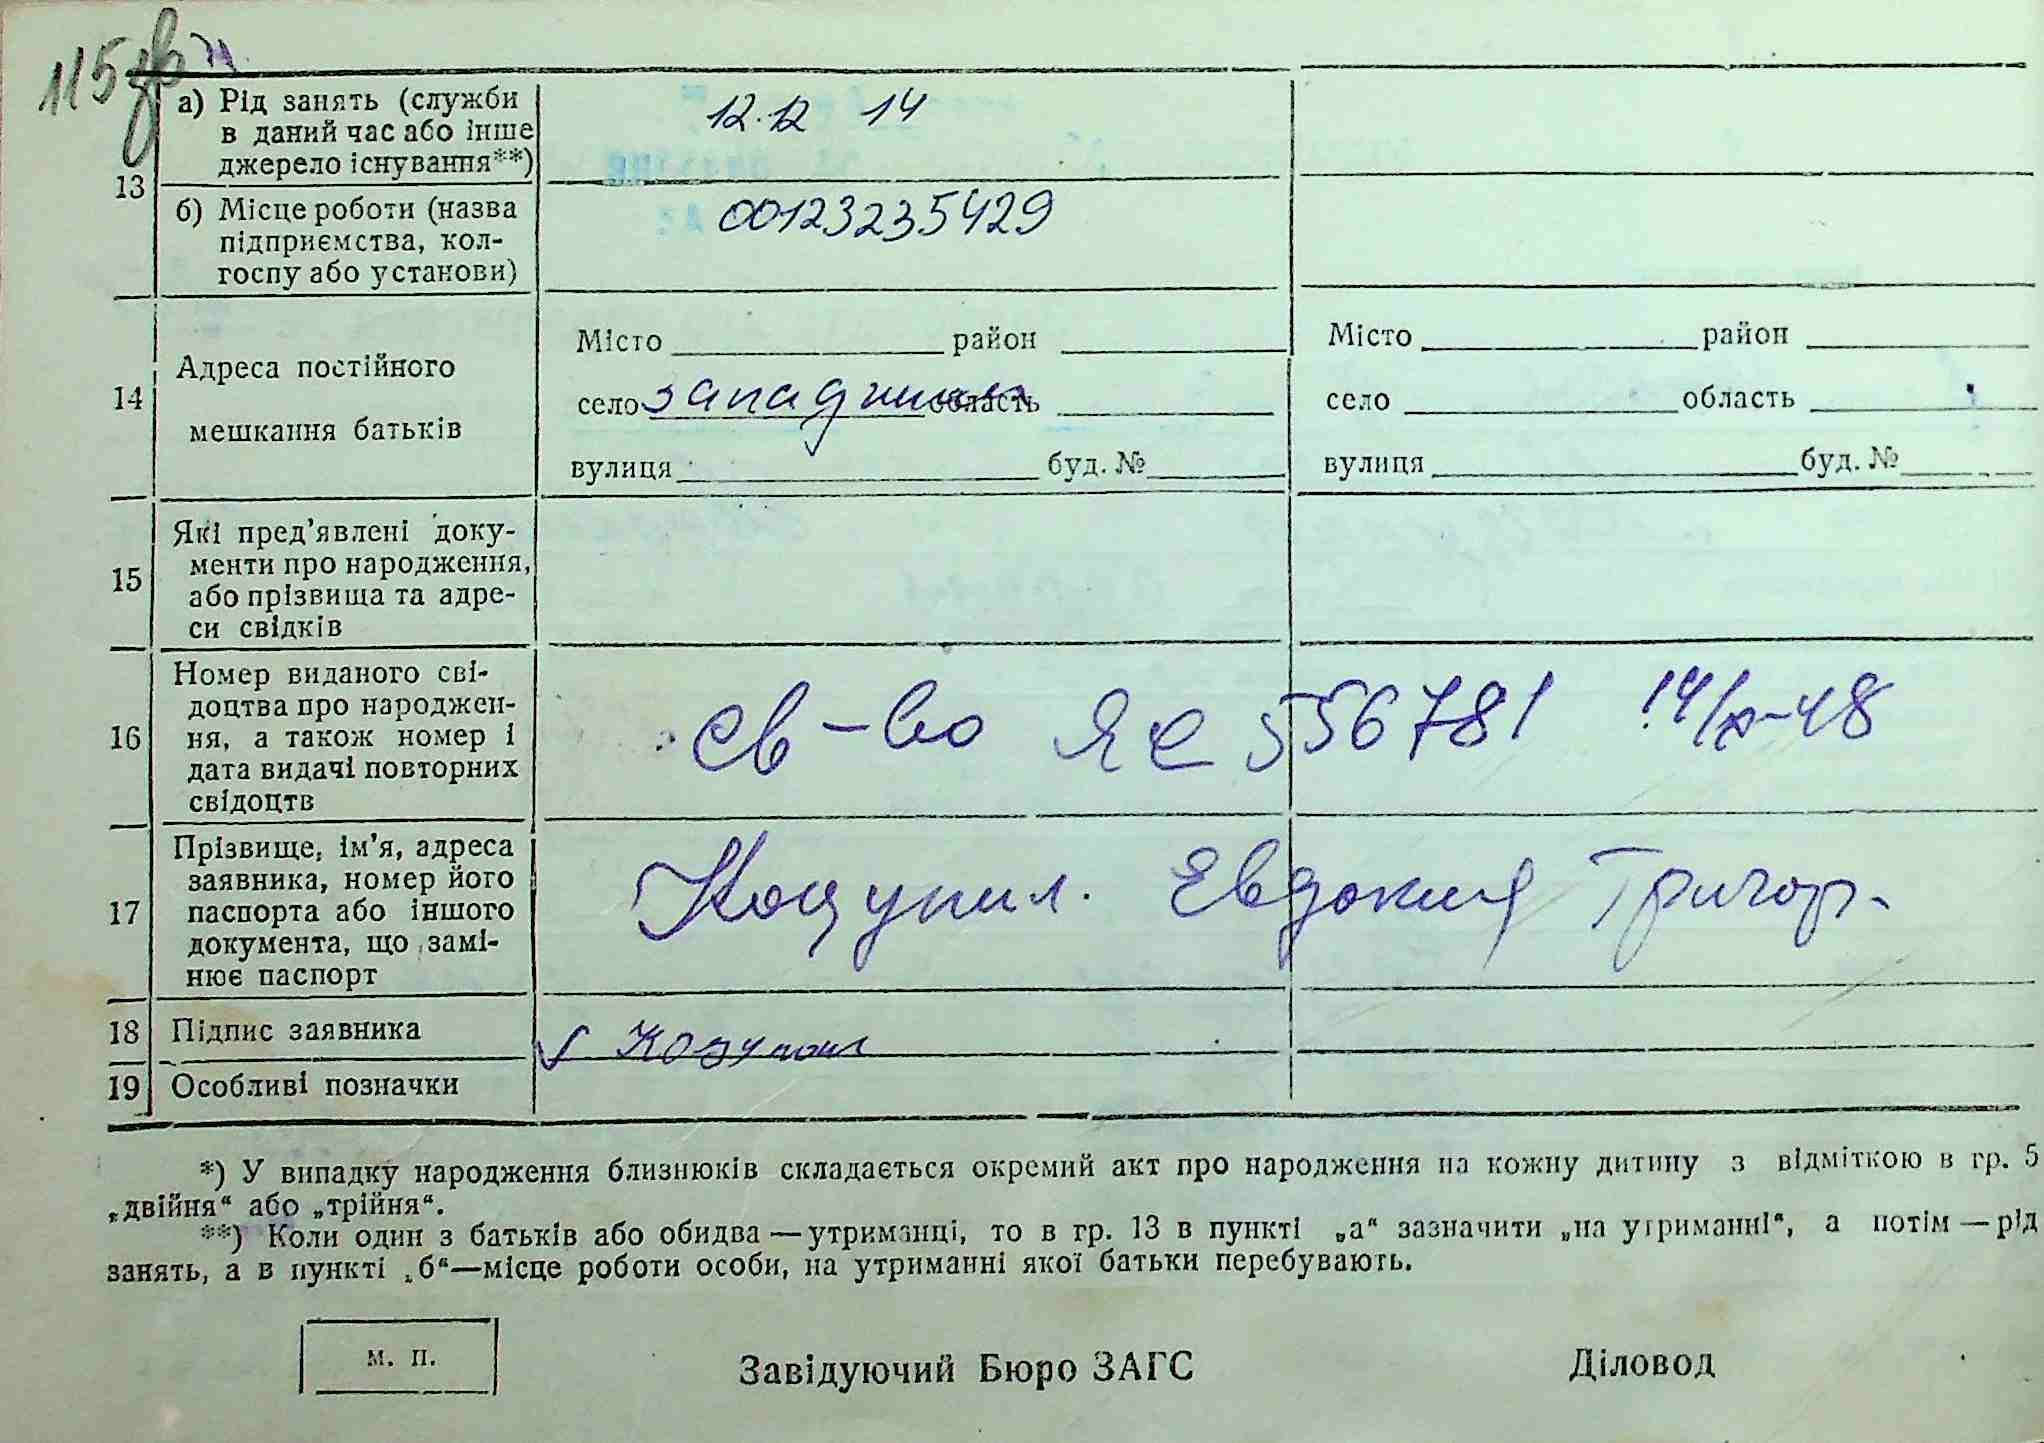 115
а) Рід занять (служби
в даний час або інше
джерело існування**)
12.12 14
13
б) Місце роботи (назва
підприємства, кол-
госпу або установи)
00123235429
14
Адреса постійного
мешкання батьків
Місто район
село область
вулиця буд. №
Місто район
село область
вулиця буд. №
15
Які пред’явлені доку-
менти про народження,
або прізвища та адре-
си свідків
16
Номер виданого сві-
доцтва про народжен-
ня, а також номер і
дата видачі повторних
свідоцтв
Св-во ЯС 556781 14/X-48
17
Прізвище, ім’я, адреса
заявника, номер його
паспорта або іншого
документа, що замі-
нює паспорт
Евдокия Григор.
18
Підпис заявника
19
Особливі позначки
*) У випадку народження близнюків складається окремий акт про народження на кожну дитину з відміткою в гр. 5
„двійня“ або „трійня“.
**) Коли один з батьків або обидва — утриманці, то в гр. 13 в пункті „а“ зазначити „на утриманні“, а потім — рід
занять, а в пункті „б“—місце роботи особи, на утриманні якої батьки перебувають.
м. п.
Завідуючий Бюро ЗАГС
Діловод